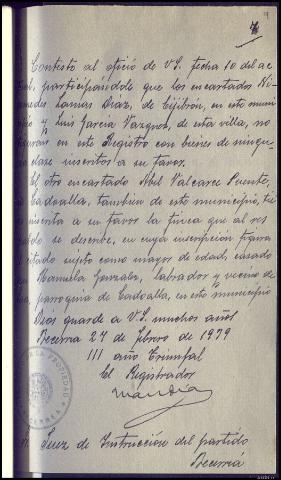 Contesto al oficio de V.S. fecha 10 del ac
participándole que los encartados Ni
Lamas Díaz, de Cijibrón, en este muni
y Luis García Vazquez, de esta villa, no
en este Registro con bienes de ningu
clase inscritos a su favor.
El otro encartado Abel Valcarce Puente,
Cadoalla, tambien de este municipio, tie
inscrita a su favor la finca que al res
se describe, en cuya inscripción figura
citado sujeto como mayor de edad, casado
Manuela Gonzalez, labrador y vecino de
parroquia de Cadoalla, en este municipio
Dios guarde a V.S. muchos años
Becerreá 27 de febrero de 1939
III año Triunfal
El Registrador
Juez de Instrucción del partido
Becerreá